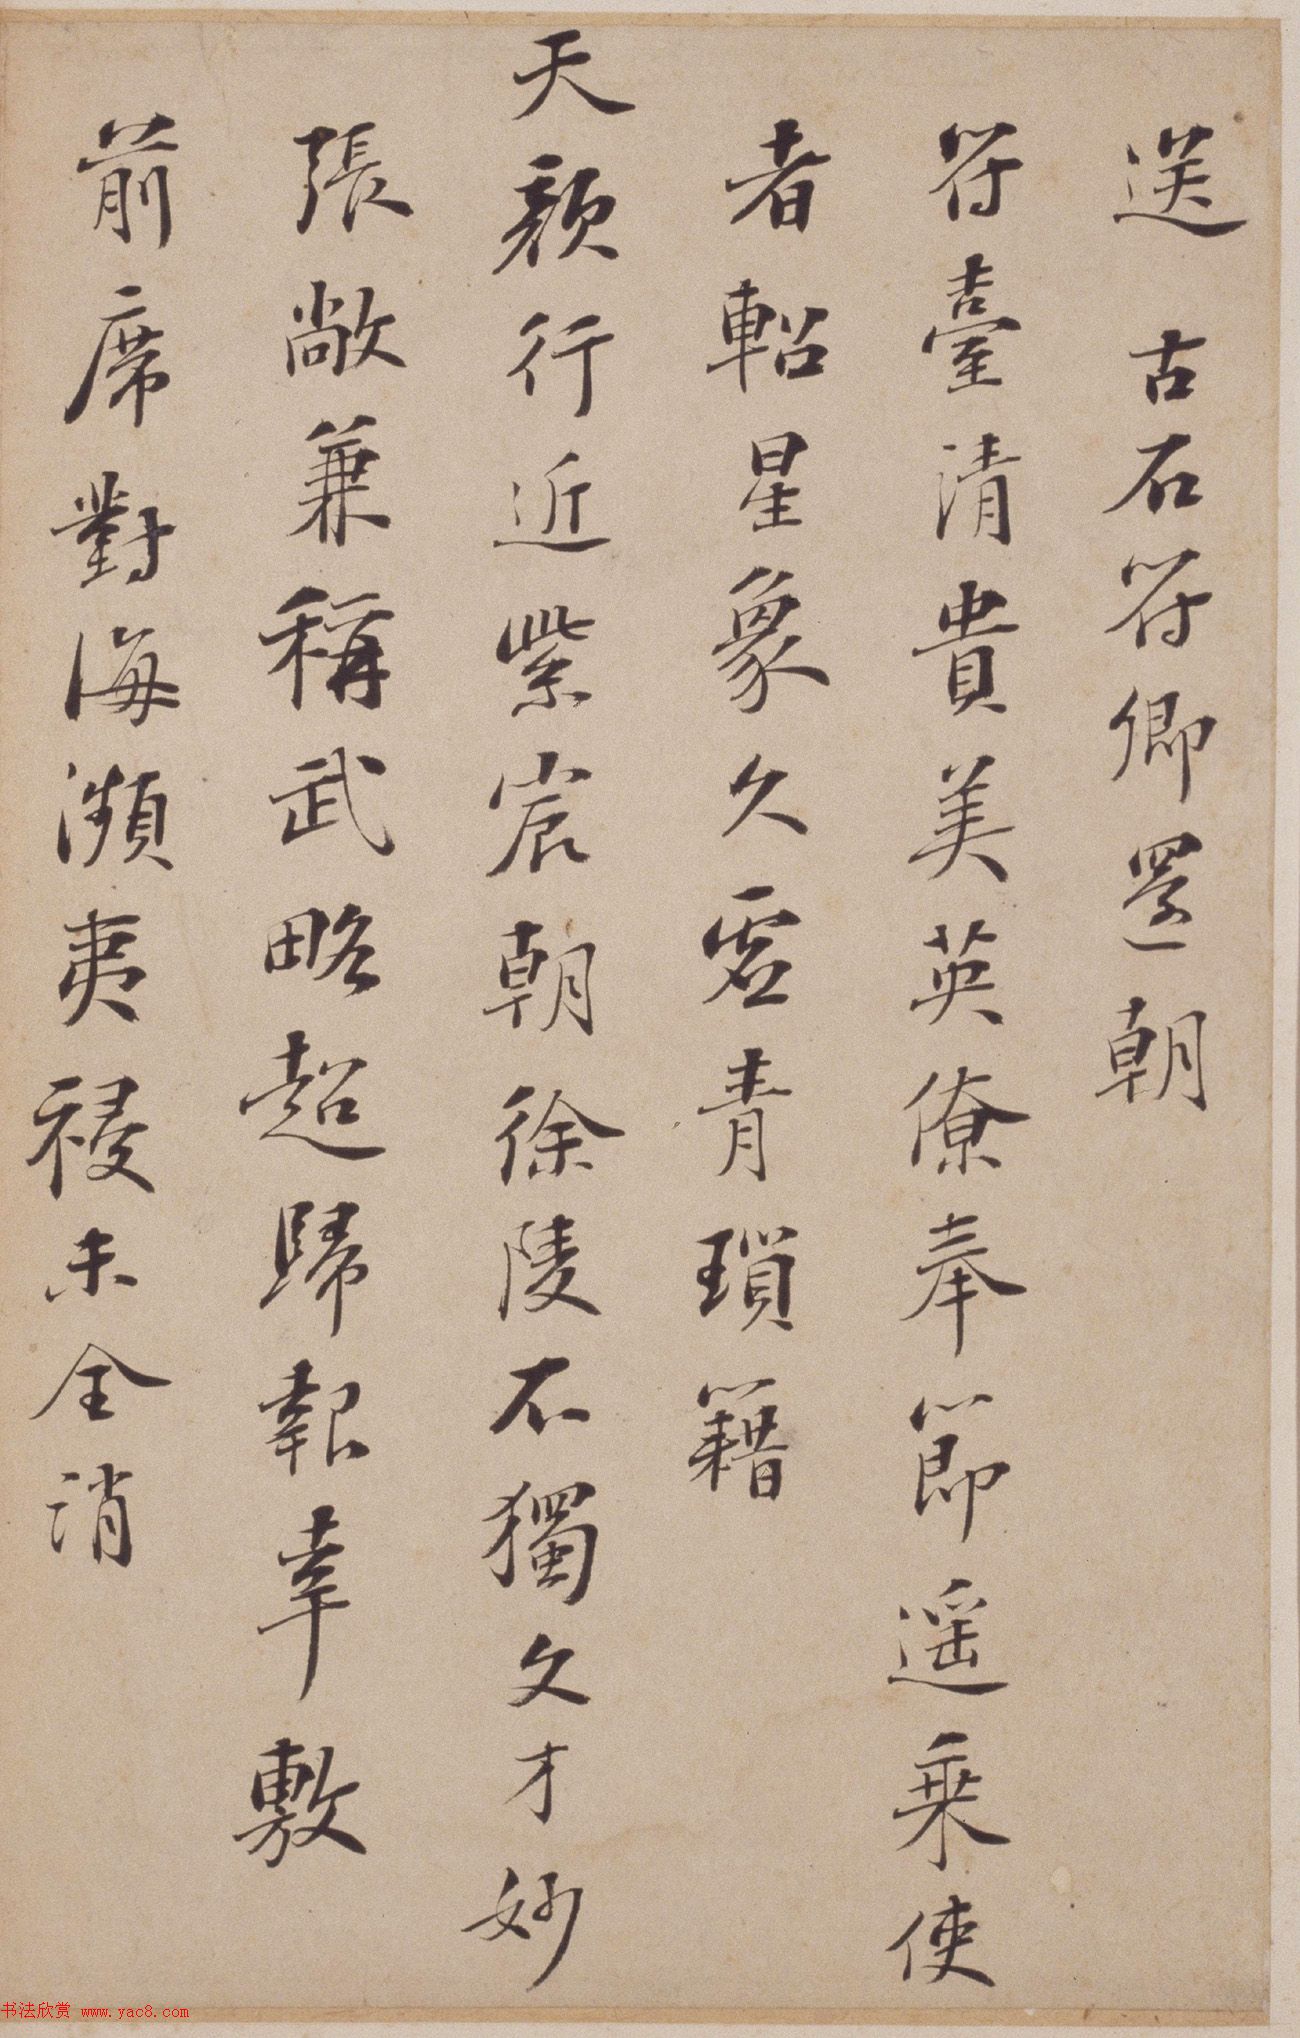 送 古石符卿還朝
符臺清貴美英僚奉節遥乗使
者軺星象久雲青瑣籍
天顔行近紫宸朝徐陵不獨文才妙
張敞兼稱武略超歸報幸敷
前席對海瀕夷祲未全消
书法欣赏 www.yac8.com